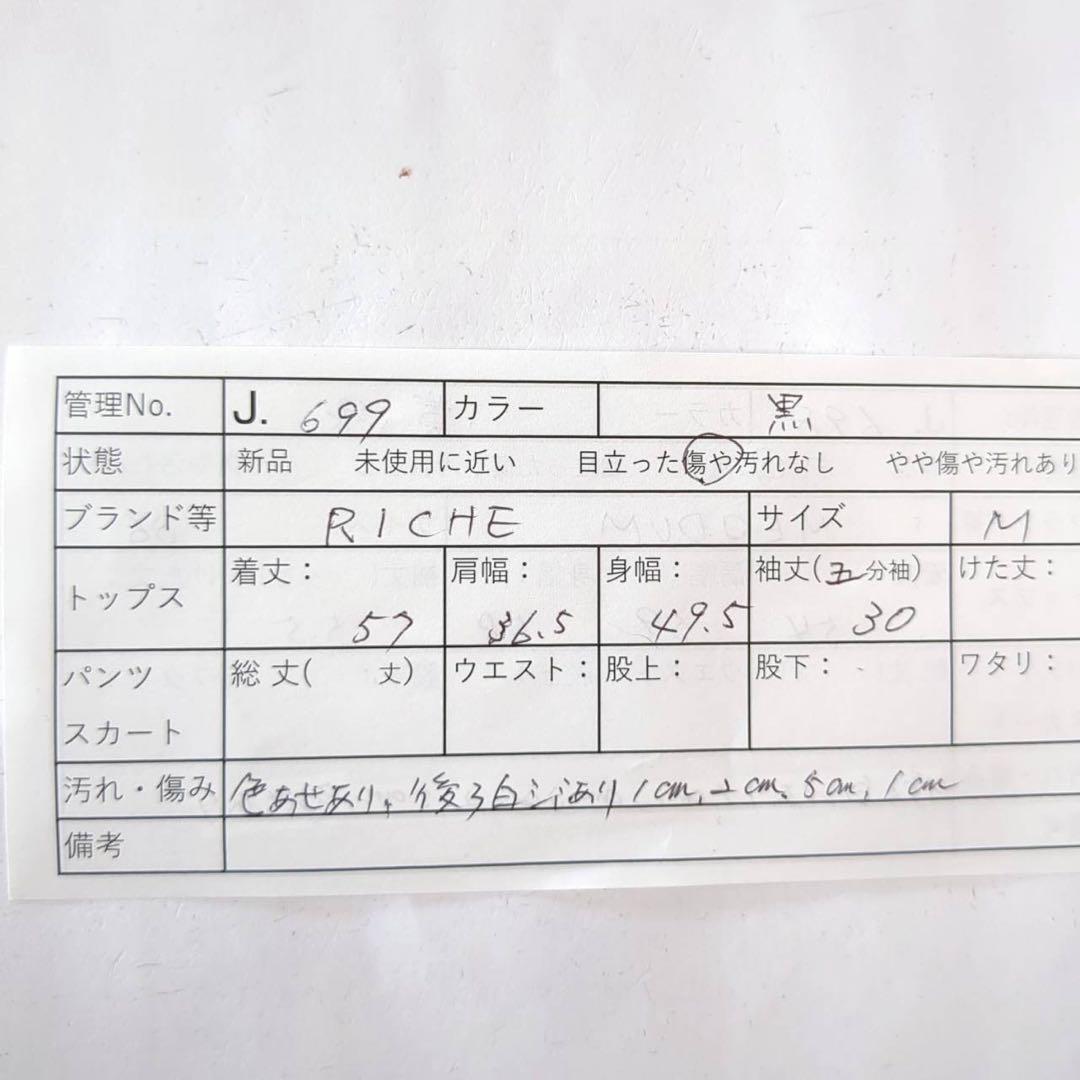 管理No. J. 699 カラー 黒
状態 新品 未使用に近い 目立った傷や汚れなし やや傷や汚れあり
ブランド等 RICHE サイズ M
トップス 着丈： 57 肩幅： 36.5 身幅： 49.5 袖丈(五分袖) 30 けた丈：
パンツ スカート 総丈( 丈) ウエスト： 股上： 股下： ワタリ：
汚れ・傷み 色あせあり、後ろ白シミあり 1cm, 2cm, 5cm, 1cm
備考